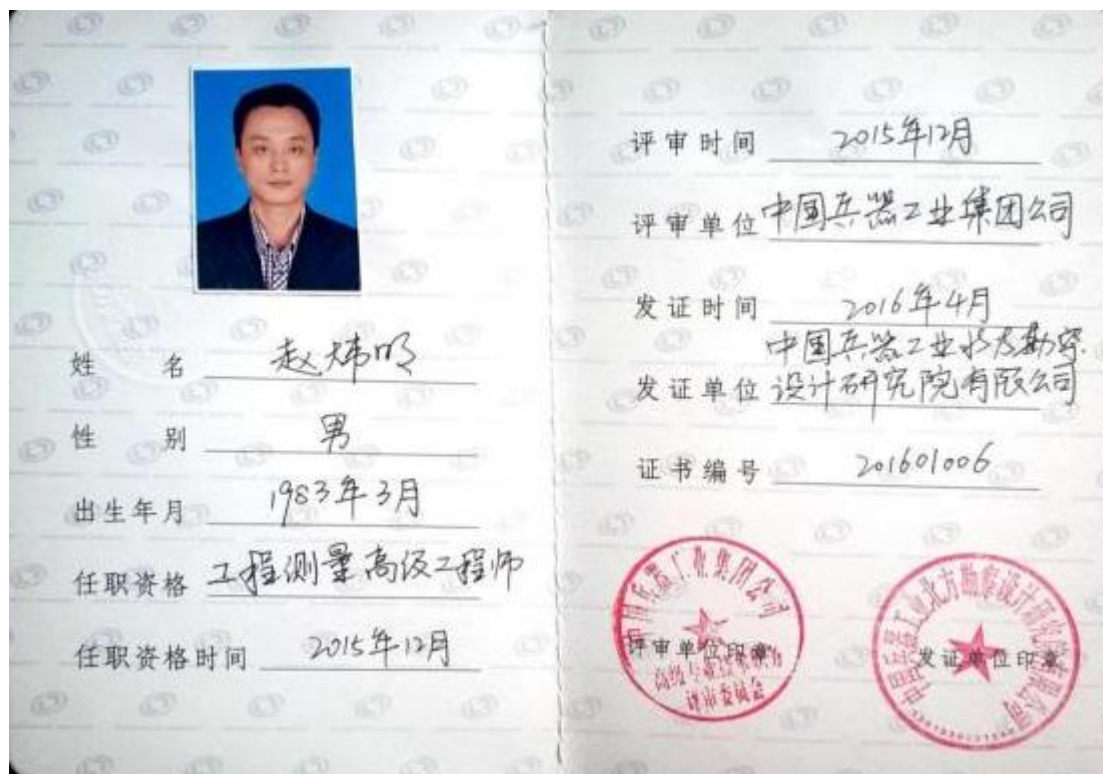 姓 名 赵炜明
性 别 男
出生年月 1983年3月
任职资格 工程测量高级工程师
任职资格时间 2015年12月
评审时间 2015年12月
评审单位 中国兵器工业集团公司
发证时间 2016年4月
中国兵器工业北方勘察
发证单位 设计研究院有限公司
证书编号 201601006
中国兵器工业集团公司
评审单位印章
评审委员会
中国兵器工业北方勘察设计研究院有限公司
发证单位印章